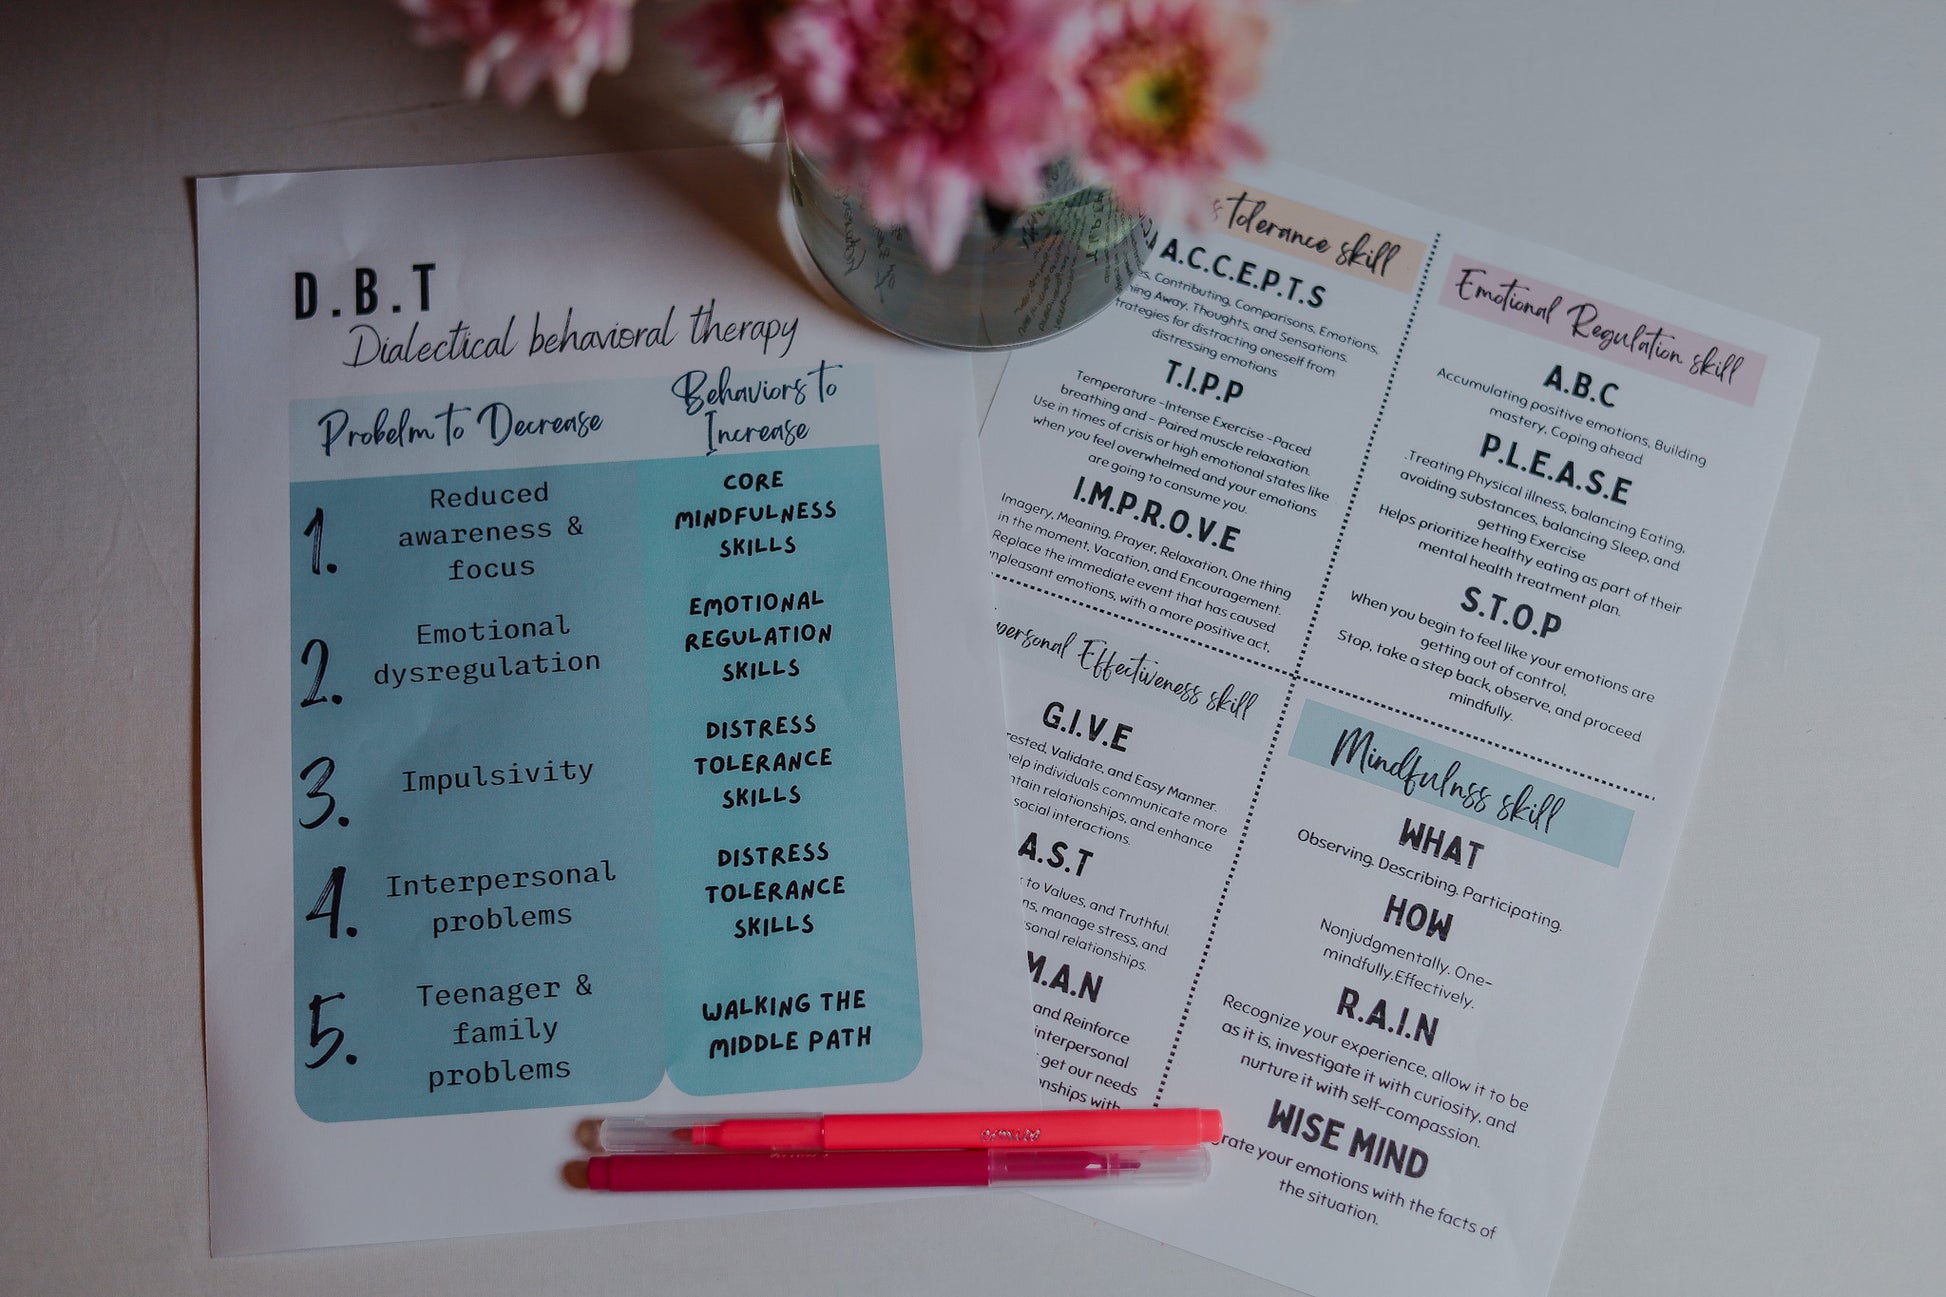 D.B.T
Dialectical behavioral therapy
Probelm to Decrease
Behaviors to
Increase
1.
Reduced
awareness &
focus
CORE
MINDFULNESS
SKILLS
2.
Emotional
dysregulation
EMOTIONAL
REGULATION
SKILLS
3.
Impulsivity
DISTRESS
TOLERANCE
SKILLS
4.
Interpersonal
problems
DISTRESS
TOLERANCE
SKILLS
5.
Teenager &
family
problems
WALKING THE
MIDDLE PATH
tolerance skill
A.C.C.E.P.T.S
Contributing, Comparisons, Emotions,
Away, Thoughts, and Sensations.
for distracting oneself from
distressing emotions
T.I.P.P
Temperature -Intense Exercise -Paced
breathing and - Paired muscle relaxation.
Use in times of crisis or high emotional states like
when you feel overwhelmed and your emotions
are going to consume you.
I.M.P.R.O.V.E
Imagery, Meaning, Prayer, Relaxation, One thing
in the moment, Vacation, and Encouragement.
Replace the immediate event that has caused
emotions, with a more positive act,
Emotional Regulation skill
A.B.C
Accumulating positive emotions, Building
mastery, Coping ahead
P.L.E.A.S.E
.Treating Physical illness, balancing Eating,
avoiding substances, balancing Sleep, and
getting Exercise
Helps prioritize healthy eating as part of their
mental health treatment plan.
S.T.O.P
When you begin to feel like your emotions are
getting out of control,
Stop, take a step back, observe, and proceed
mindfully.
Effectiveness skill
G.I.V.E
Validate, and Easy Manner.
help individuals communicate more
relationships, and enhance
social interactions.
A.S.T
to Values, and Truthful.
manage stress, and
relationships.
M.A.N
and Reinforce
interpersonal
get our needs
with
Mindfulnss skill
WHAT
Observing. Describing. Participating.
HOW
Nonjudgmentally. One-
mindfully.Effectively.
R.A.I.N
Recognize your experience, allow it to be
as it is, investigate it with curiosity, and
nurture it with self-compassion.
WISE MIND
your emotions with the facts of
the situation.